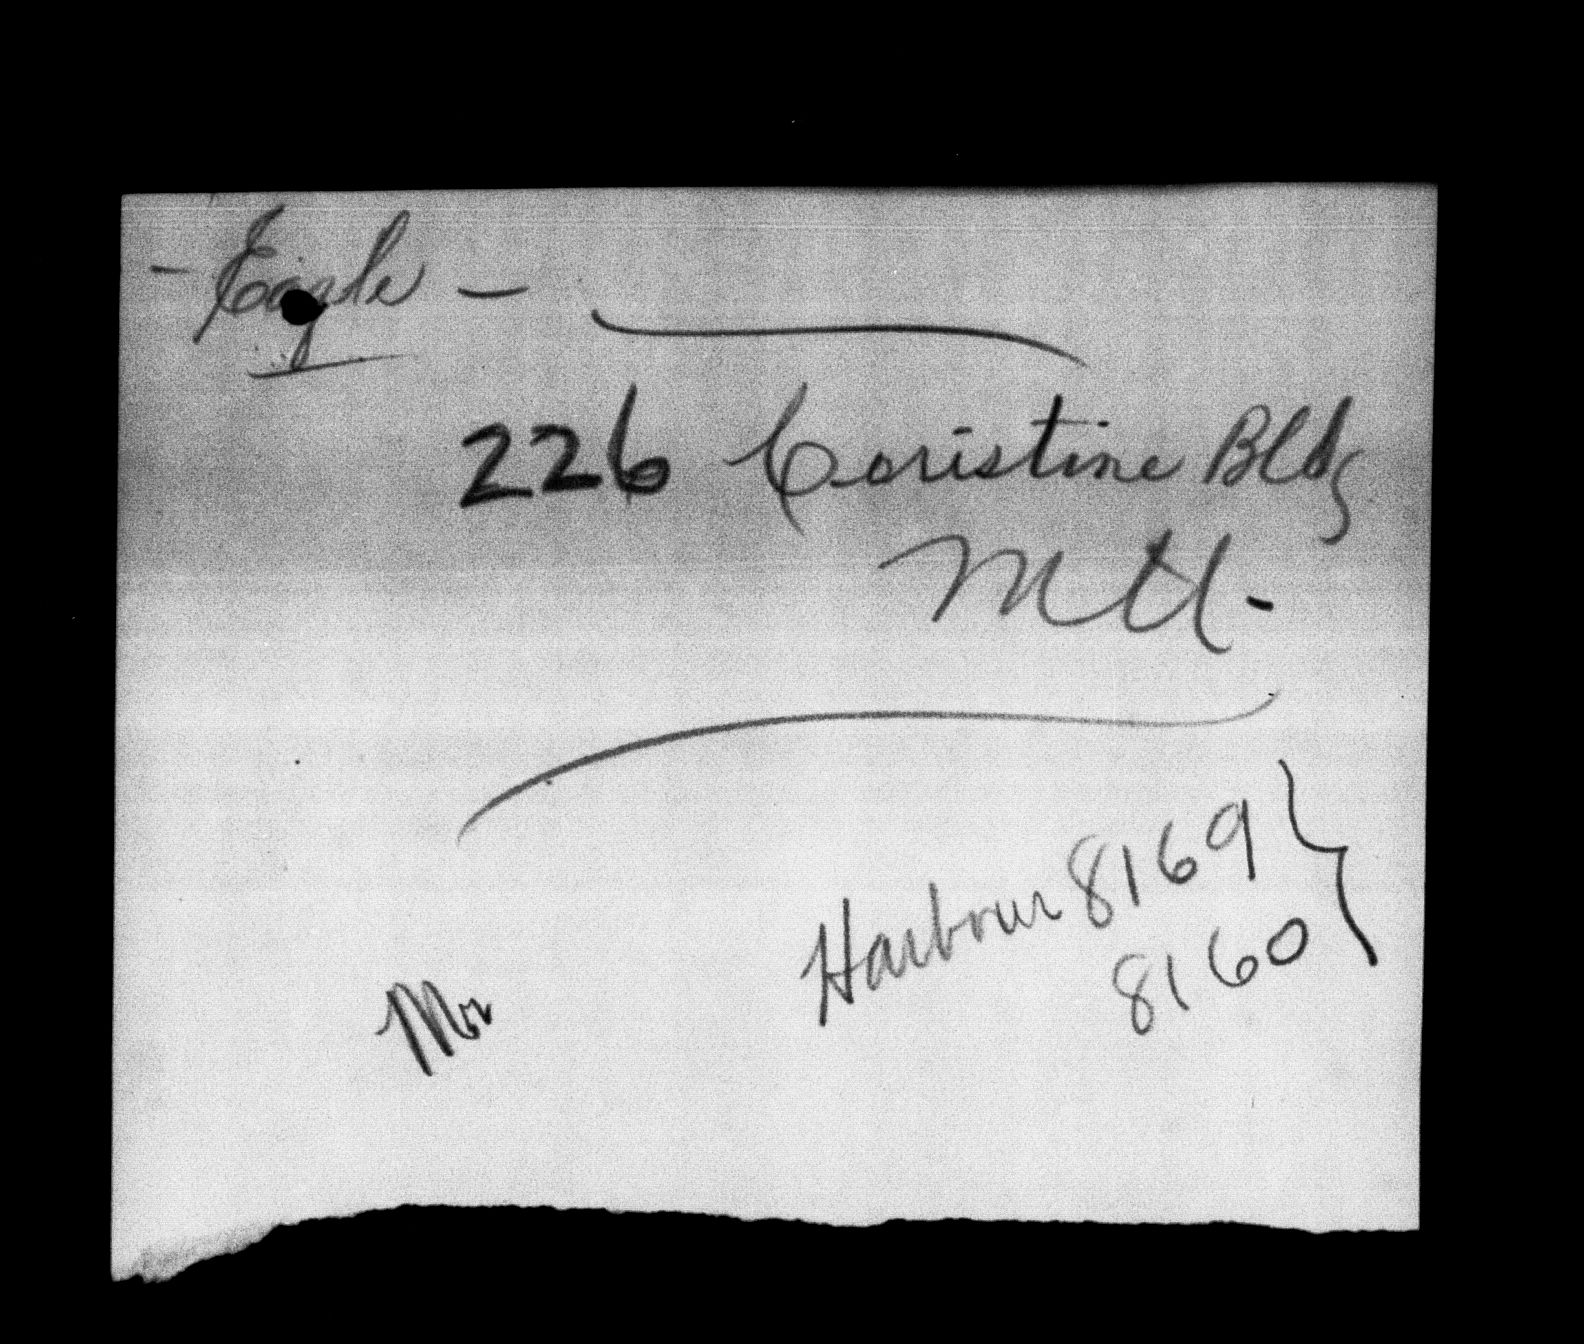 - Eagle -
226 Coristine Bldg
Mtl.
Harbour 8169
8160